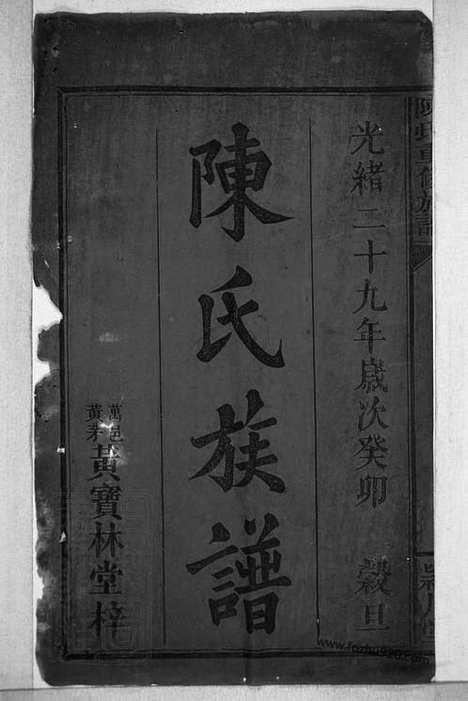 光緒二十九年歲次癸卯 穀旦
陳氏族譜
萬邑
黃茅
黃寶林堂梓
陳氏重修族譜
www.fozhu920.com